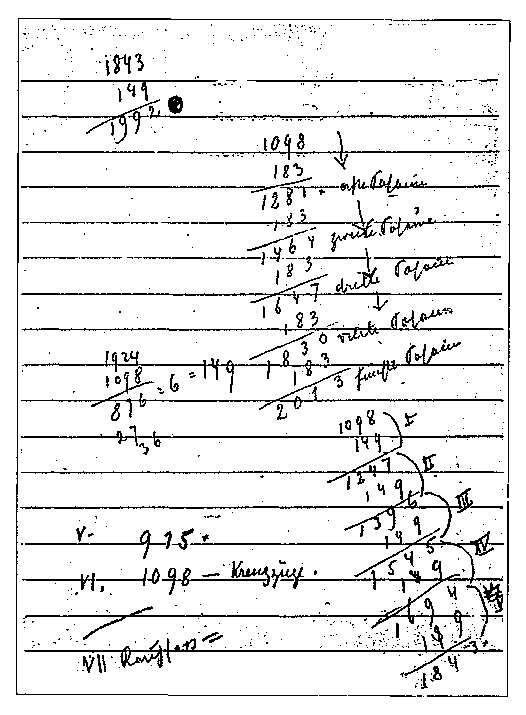 1843
149
1992
1098
183
1281. erste Posaune
183
1464 zweite Posaune
183
1647 dritte Posaune
183
1830 vierte Posaune
183
2013 fünfte Posaune
1924
1098
876 : 6 = 149
27
36
1098
149 I
1247
149 II
1396
149 III
1545
149 IV
1694
149
1843.
V. 915.
VI. 1098 – Kreuzzüge.
VII